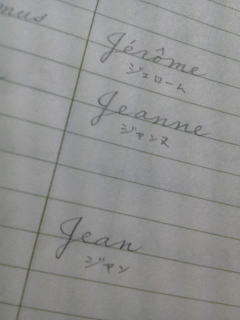 mus
Jérôme
ジェローム
Jeanne
ジャンヌ
Jean
ジャン